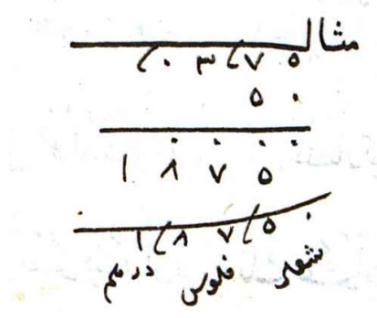 مثال
/٠٣/٧٥
٥٠
١٨٧٥
١/٨/٧/٥
درهم فلوس